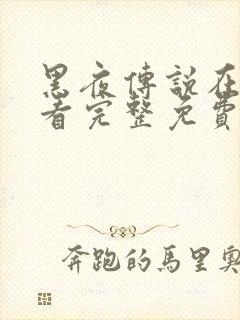 黑夜傳說在
看完整免費
奔跑的馬里奧